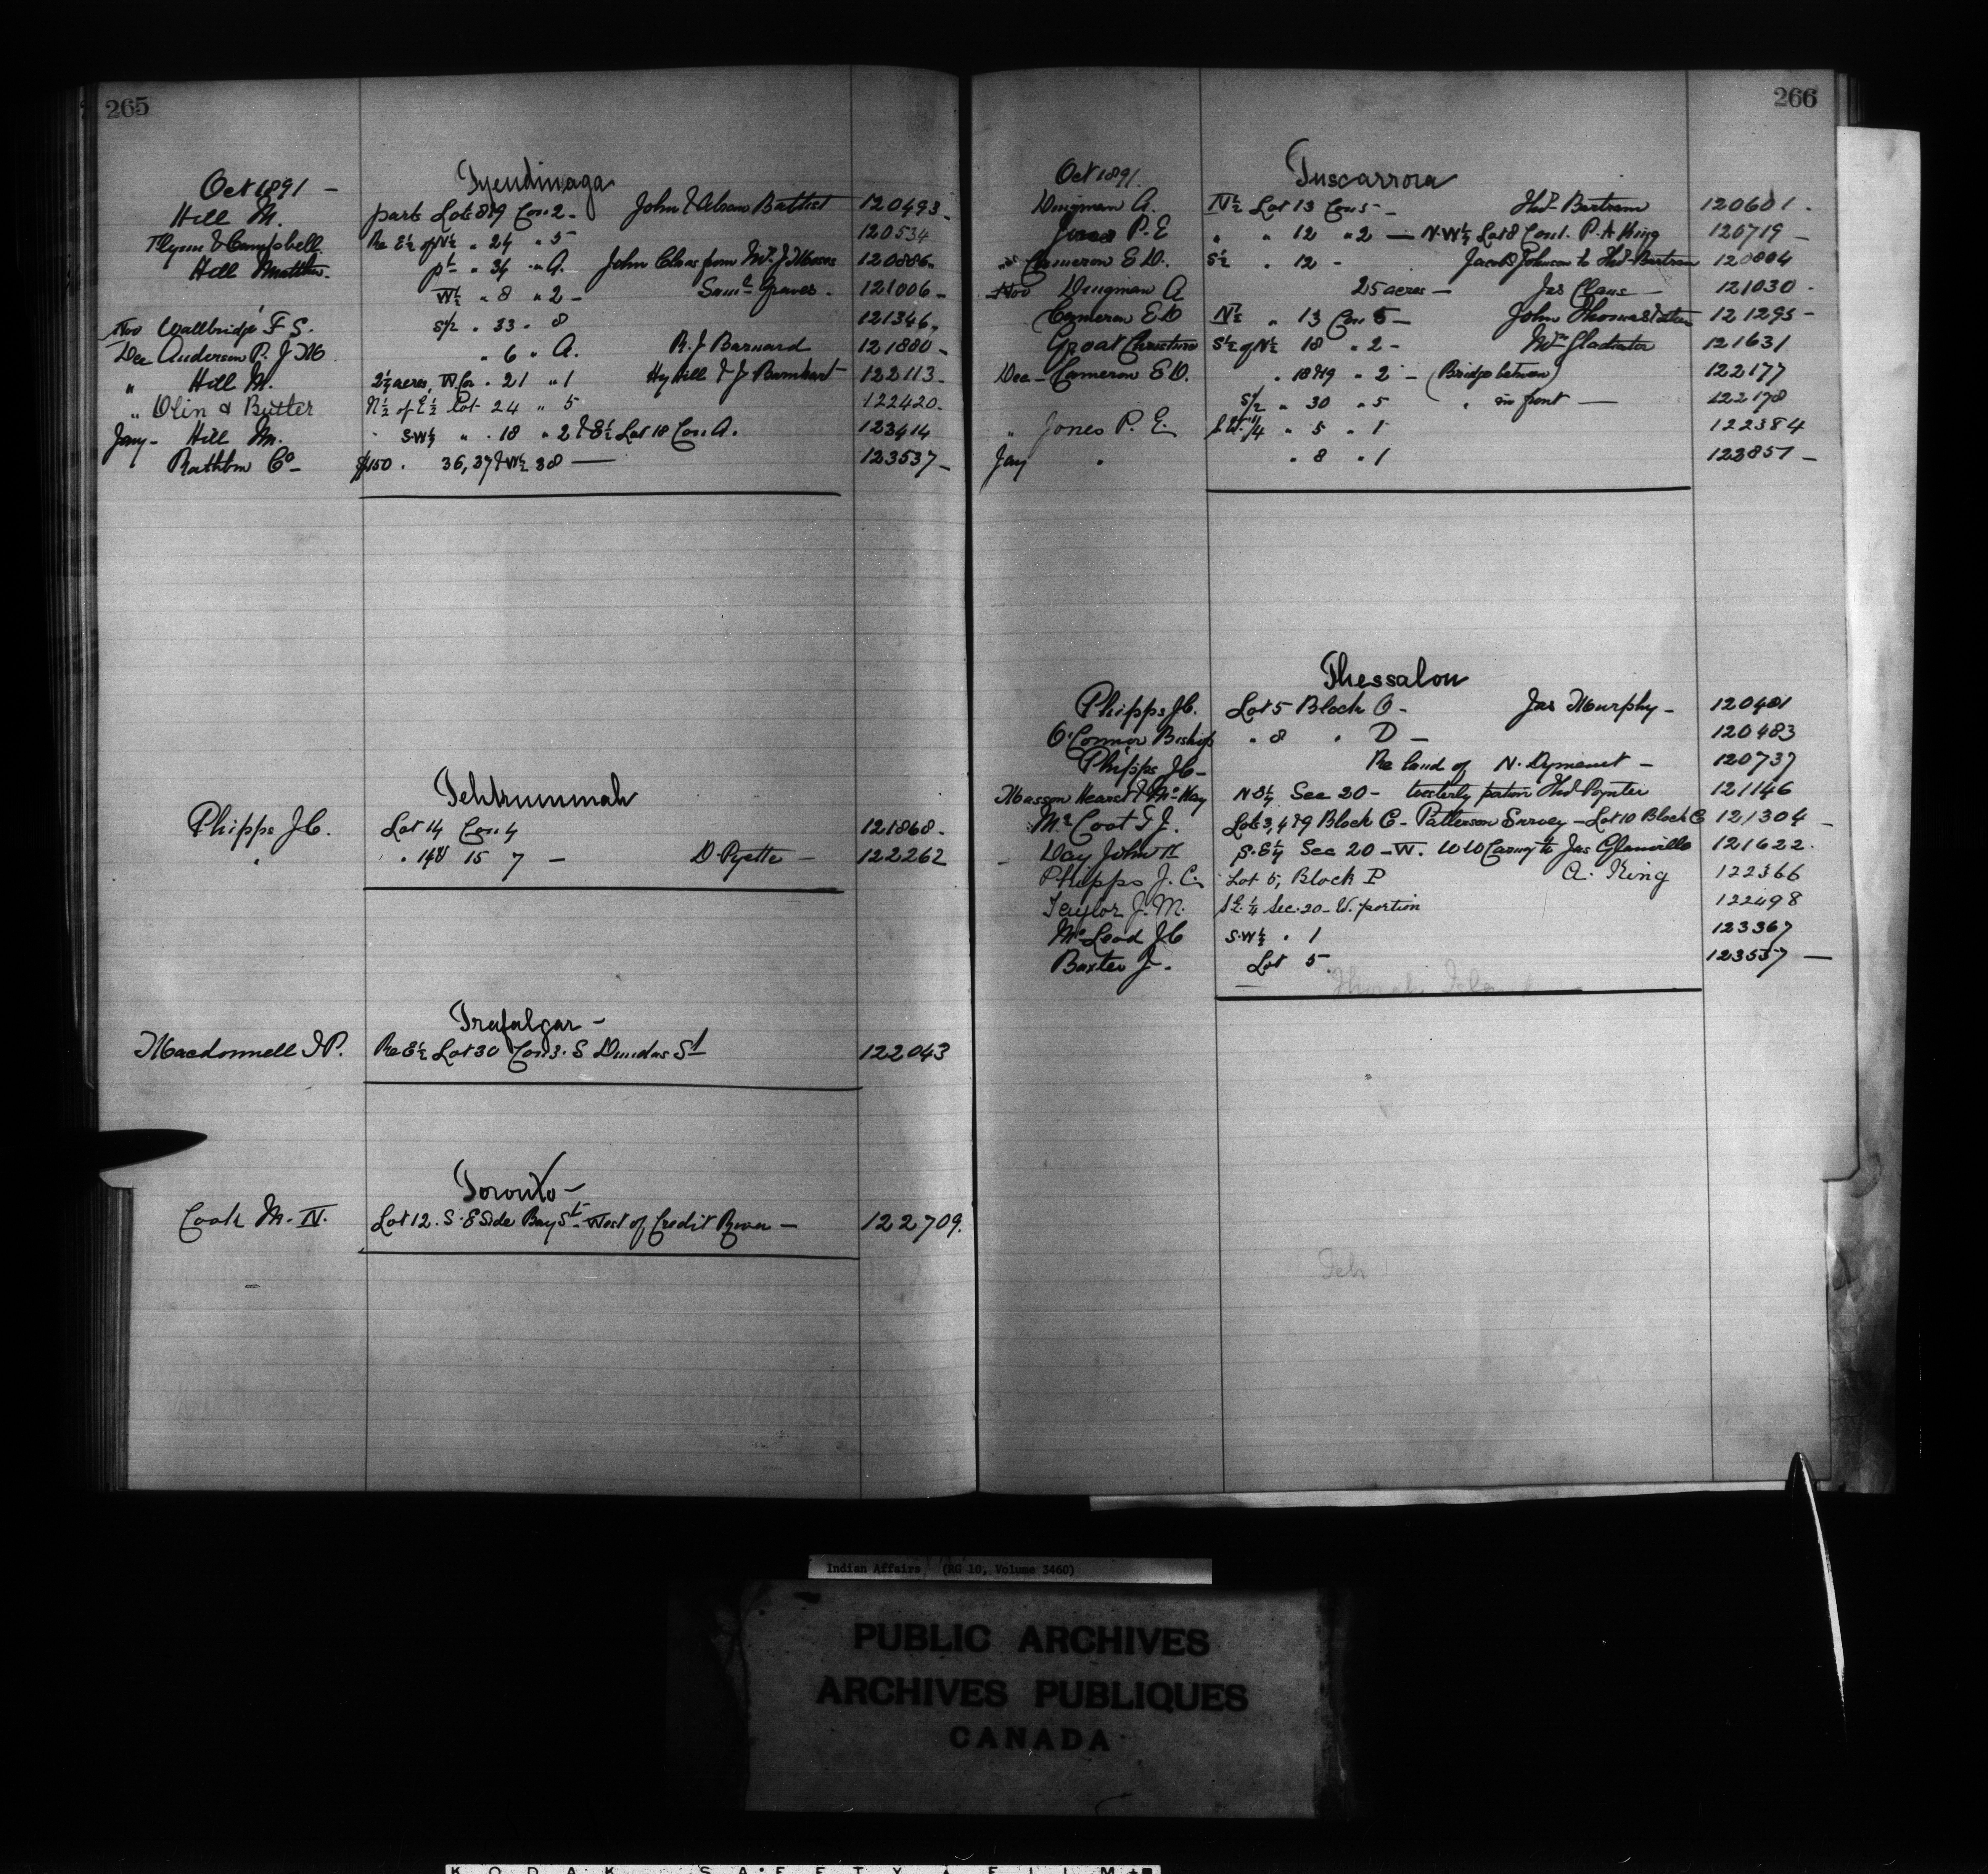 265
Oct 1891 — Tyendinaga
Hill M. parts Lots 8 & 9 Con 2 - John & Abram Battist 120493 -
Flynn & Campbell Re E½ of N½ " 24 " 5 120534
Hill Matthw. pt " 34 " A. John Claus from Mrs J Moses 120886 -
W½ " 8 " 2 - Saml Graves - 121006 -
Nov Wallbridge F S. S/2 " 33 " 8 121346 -
Dec Anderson P. J M " 6 " A. R. J Barnard 121880 -
" Hill M. 2½ acres, W Cor " 21 " 1 Hy Hill & J Barnhart 122113 -
" Olin & Butler N½ of E½ Lot 24 " 5 122420 -
Jany - Hill M. S.W¼ " 18 " 2 & E½ Lot 18 Con A. 123414
Rathbun Co - $150 . 36, 37 & W½ 38 — 123537 -
Tehkummah
Phipps J C. Lot 14 Con 4 121868 -
" " 14 & 15 7 — D. Pyette — 122262
Trafalgar -
Macdonnell I P. Re E½ Lot 30 Con 3. S Dundas St 122043
Toronto -
Cook M. N. Lot 12. S. E Side Bay St - West of Credit River — 122709.
266
Oct 1891. Tuscarrora
Dingman A. N½ Lot 13 Con 5 - Thos Bertram 120601 .
Jones P. E " " 12 " 2 — N. W¼ Lot 8 Con 1. P. A King 120719 -
" Cameron E D. S½ " 12 - Jacob Johnson to Thos Bertram 120804
Nov Dingman A 25 acres — Jas Claus — 121030 -
Cameron E D N½ " 13 Con 5 - John Thomas 121295 -
Groat Christine S½ of N½ 18 " 2 - Mrs Gladiator 121631
Dec - Cameron E D. " 18 & 19 " 2 - (Bridge between) 122177
S/2 " 30 " 5 " in front — 122178
" Jones P. E. S.W. 1/4 " 5 " 1 122384
Jany " " 8 " 1 123857 -
Thessalon
Phipps J C. Lot 5 Block O - Jas Murphy - 120481
O'Connor Bishop " 8 " D — 120483
Phipps J C - Re land of N. Dyment - 120737
Masson Hearst & McKay N E¼ Sec 20 - Westerly portion Thos Poynter 121146
McCoot T J. Lots 3, 4 & 9 Block C - Patterson Survey - Lot 10 Block C 121304 -
Day John S. E¼ Sec 20 - W. to Jas Glanville 121622.
Phipps J. C. Lot 5, Block P A. King 122366
Taylor J. M. S E. ¼ Sec. 20 - W. portion 122498
McLeod J C S. W½ " 1 123367
Baxter J. Lot 5 123557 —
Thorah Island
Teh
Indian Affairs (RG 10, Volume 3460)
PUBLIC ARCHIVES
ARCHIVES PUBLIQUES
CANADA
KODAK SAFETY FILM